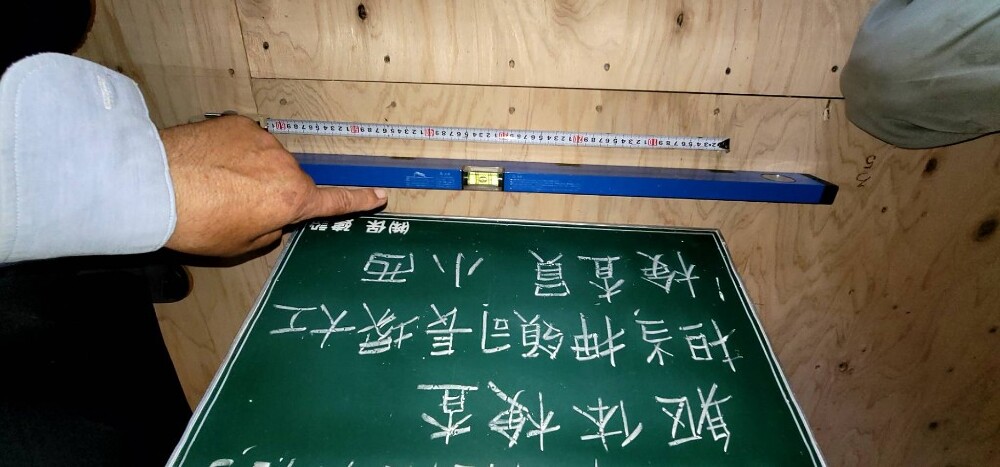 躯体検査
担当押領司長塚大工
検査員 小西
㈱保 建設